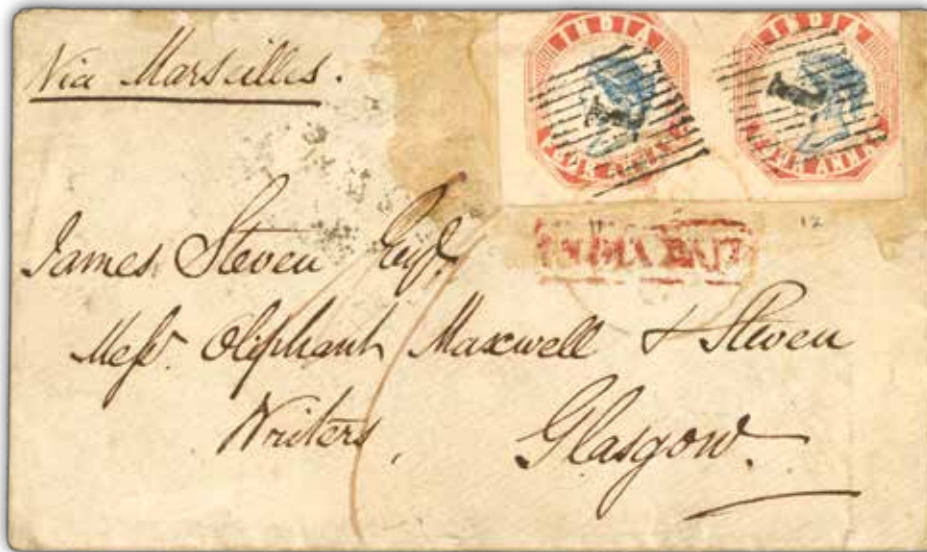 Via Marseilles.
INDIA INDIA
FOUR ANNAS FOUR ANNAS
1 1
12
INDIA PAID
James Steven Esqr.
Messrs. Oliphant Maxwell & Steven
Writers,
Glasgow.